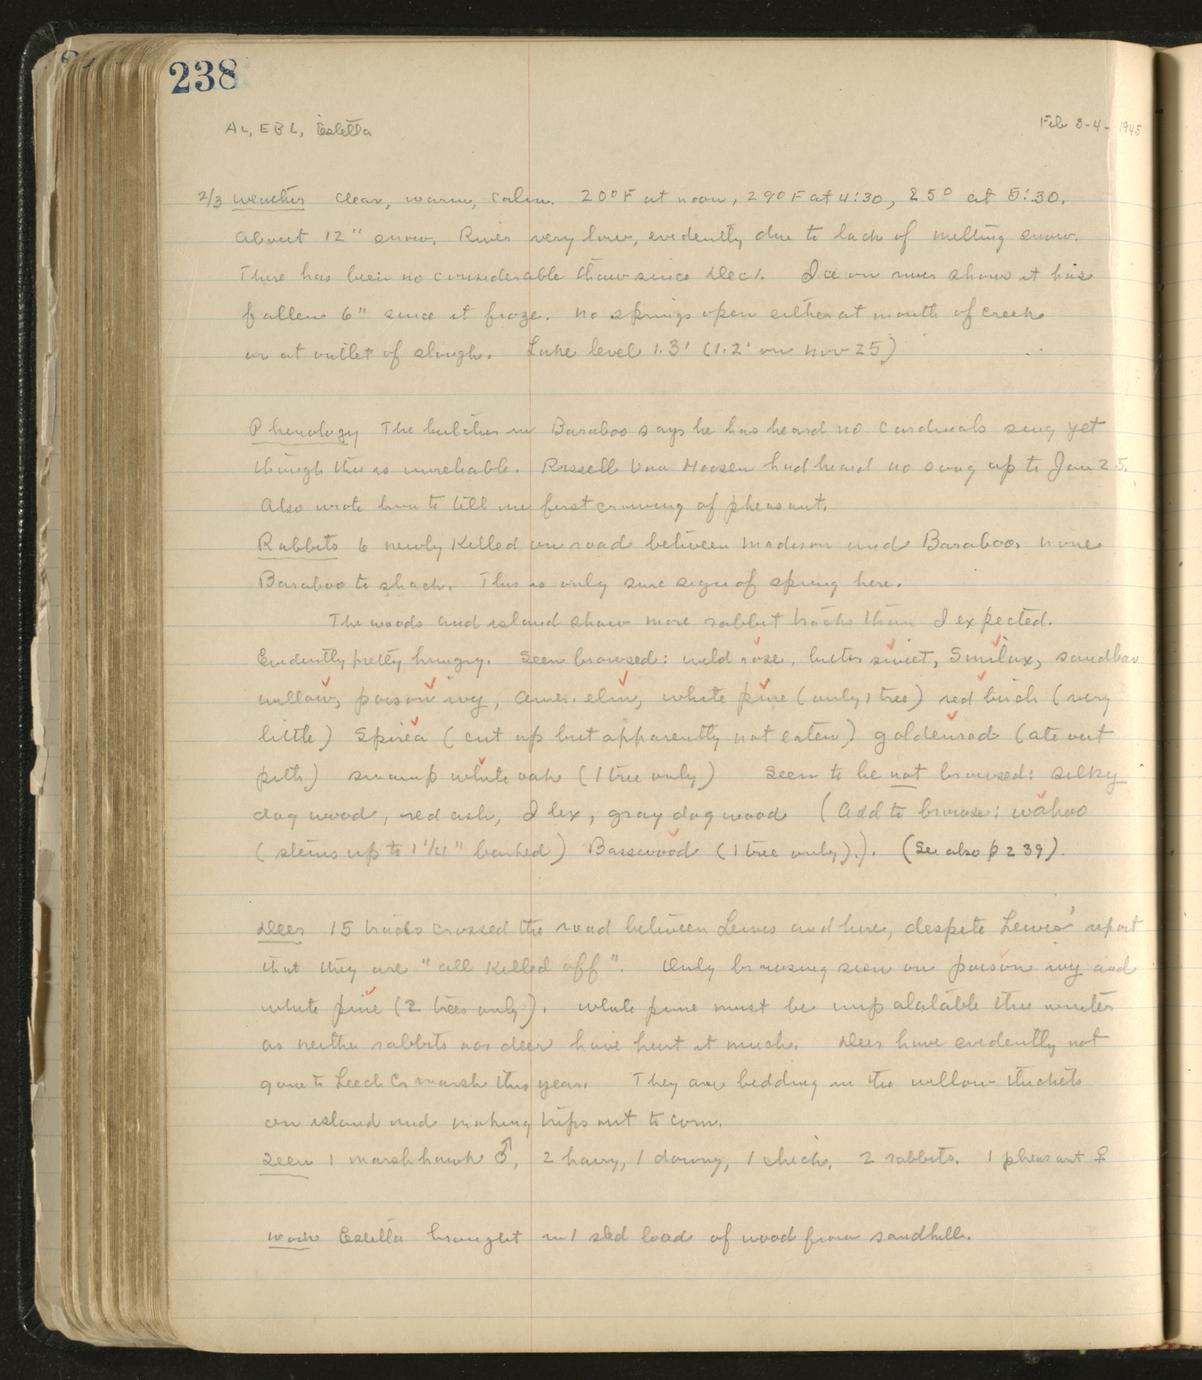 238
AL, EBL, Estella Feb 3-4- 1945
2/3 Weather Clear, warm, calm. 20°F at noon, 29°F at 4:30, 25° at 5:30.
About 12" snow. River very low, evidently due to lack of melting snow.
There has been no considerable thaw since Dec 1. Ice on river shows it has
fallen 6" since it froze. No springs open either at mouth of creek
or at outlet of slough. Lake level 1.3' (1.2' on Nov 25)
Phenology The butcher in Baraboo says he has heard no cardinals sing yet
though this is unreliable. Russell Van Hoosen had heard no song up to Jan 25.
Also wrote him to tell me first crowing of pheasant.
Rabbits 6 newly killed on road between Madison and Baraboo, none
Baraboo to shack. This is only sure sign of spring here.
The woods and island show more rabbit tracks than I expected.
Evidently pretty hungry. Seen browsed: wild rose, bittersweet, Smilax, sandbar
willow, poison ivy, Amer. elm, white pine (only 1 tree) red birch (very
little) Spirea (cut up but apparently not eaten) goldenrod (ate out
pith) swamp white oak (1 tree only) Seem to be not browsed: silky
dogwood, red ash, Ilex, gray dogwood (Add to browse: wahoo
(stems up to 1 1/4" barked) Basswood (1 tree only)). (See also p 239).
Deer 15 tracks crossed the road between Lewis and here, despite Lewis' report
that they are "all killed off". Only browsing seen on poison ivy and
white pine (2 trees only). White pine must be unpalatable this winter
as neither rabbits nor deer have hurt it much. Deer have evidently not
gone to Leech Cr marsh this year. They are bedding in the willow thickets
on island and making trips out to corn.
Seen 1 marsh hawk ♂, 2 hairy, 1 downy, 1 chick, 2 rabbits. 1 pheasant ♀
Work Estella brought in 1 sled load of wood from sandhill.